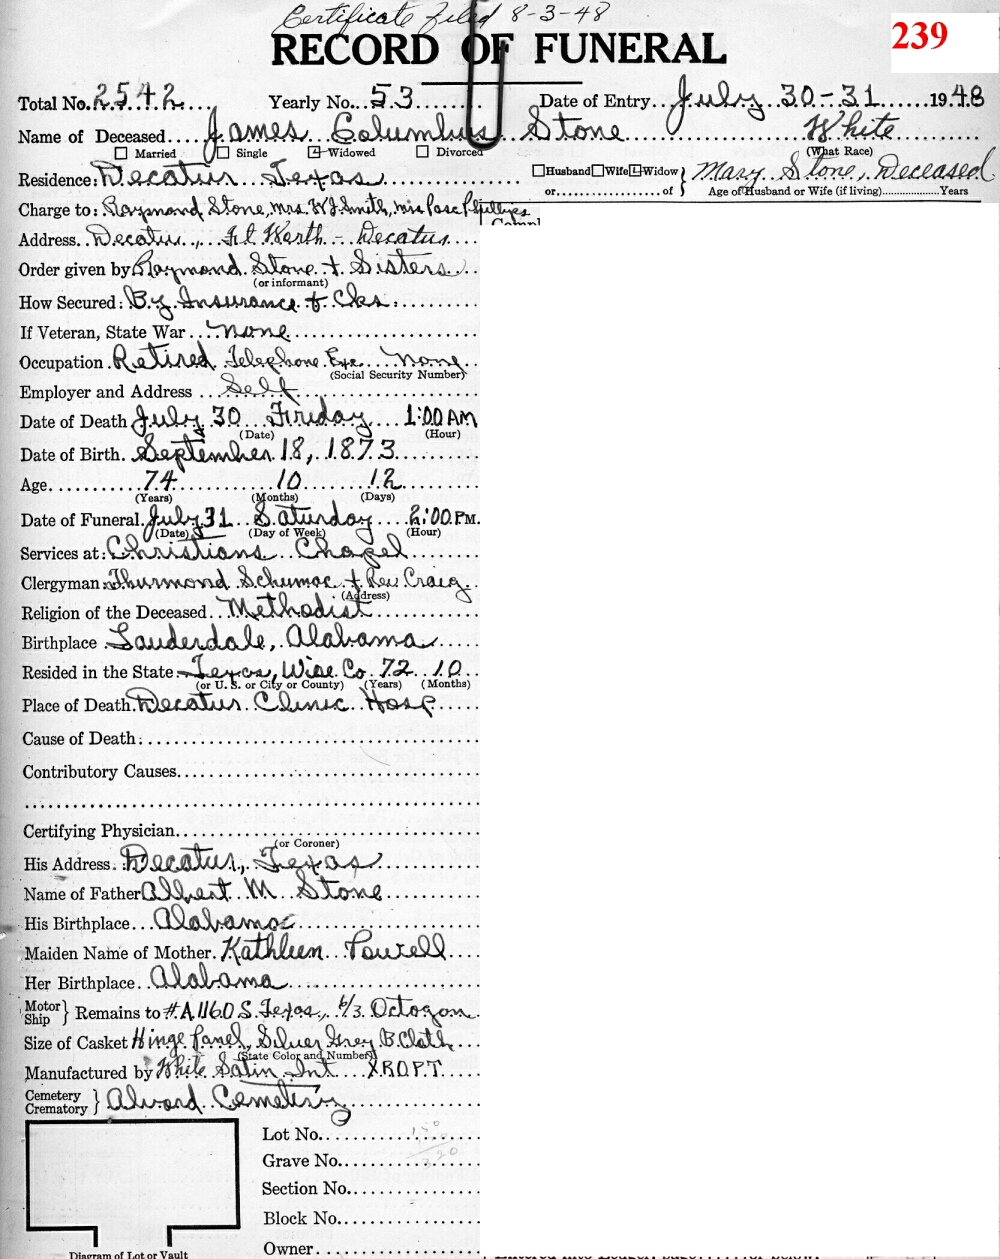 Certificate Filed 8-3-48
239
RECORD OF FUNERAL
Total No. 2542 Yearly No. 53 Date of Entry July 30-31 1948
Name of Deceased James Columbus Stone White
Married Single Widowed Divorced (What Race)
Residence: Decatur Texas Husband Wife Widow or of } Mary Stone, Deceased
Age of Husband or Wife (if living) Years
Charge to: Raymond Stone, Mrs. W.J. Smith, Mrs Pasc Phillips
Address. Decatur, Ft Worth - Decatur
Order given by Raymond Stone + Sisters
(or informant)
How Secured: By Insurance + Cks.
If Veteran, State War none
Occupation Retired Telephone Exe. None
(Social Security Number)
Employer and Address Self
Date of Death July 30 Friday 1:00 AM
(Date) (Hour)
Date of Birth. September 18, 1873
Age 74 10 12
(Years) (Months) (Days)
Date of Funeral. July 31 Saturday 2:00 P.M.
(Date) (Day of Week) (Hour)
Services at: Christians Chapel
Clergyman: Thurmond Schumac + Rev Craig
(Address)
Religion of the Deceased Methodist
Birthplace Lauderdale, Alabama
Resided in the State Texas, Wise Co. 72 10
(or U. S. or City or County) (Years) (Months)
Place of Death. Decatur Clinic Hosp
Cause of Death:
Contributory Causes
Certifying Physician
(or Coroner)
His Address. Decatur, Texas
Name of Father Albert M Stone
His Birthplace Alabama
Maiden Name of Mother. Kathleen Powell
Her Birthplace Alabama
Motor Ship } Remains to #A1160 S. Texas, 6/3 Octogon
Size of Casket Hinge Panel, Silver Grey B. Cloth
(State Color and Number)
Manufactured by White Satin Int XROPT
Cemetery Crematory } Alvord Cemetery
Lot No.
Grave No.
Section No.
Block No.
Owner
Diagram of Lot or Vault